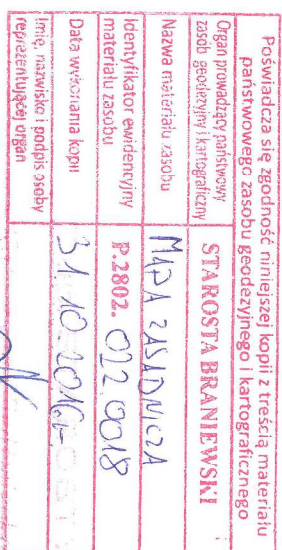 Poświadcza się zgodność niniejszej kopii z treścią materiału
państwowego zasobu geodezyjnego i kartograficznego
Organ prowadzący państwowy
zasób geodezyjny i kartograficzny
STAROSTA BRANIEWSKI
Nazwa materiału zasobu
MAPA ZASADNICZA
Identyfikator ewidencyjny
materiału zasobu
P.2802. 022.0018
Data wykonania kopii
31.10.2016r
Imię, nazwisko i podpis osoby
reprezentującej organ